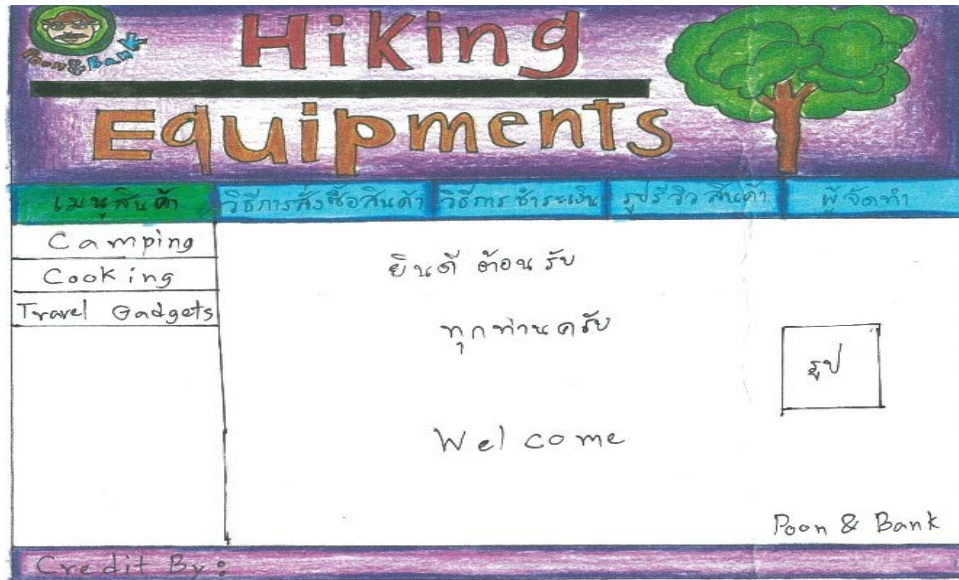 Hiking
Poon&Bank
Equipments
เมนูสินค้า วิธีการสั่งซื้อสินค้า วิธีการชำระเงิน รูปรีวิวสินค้า ผู้จัดทำ
Camping
Cooking
Travel Gadgets
ยินดี ต้อนรับ
ทุกท่านครับ
รูป
Welcome
Poon & Bank
Credit By: